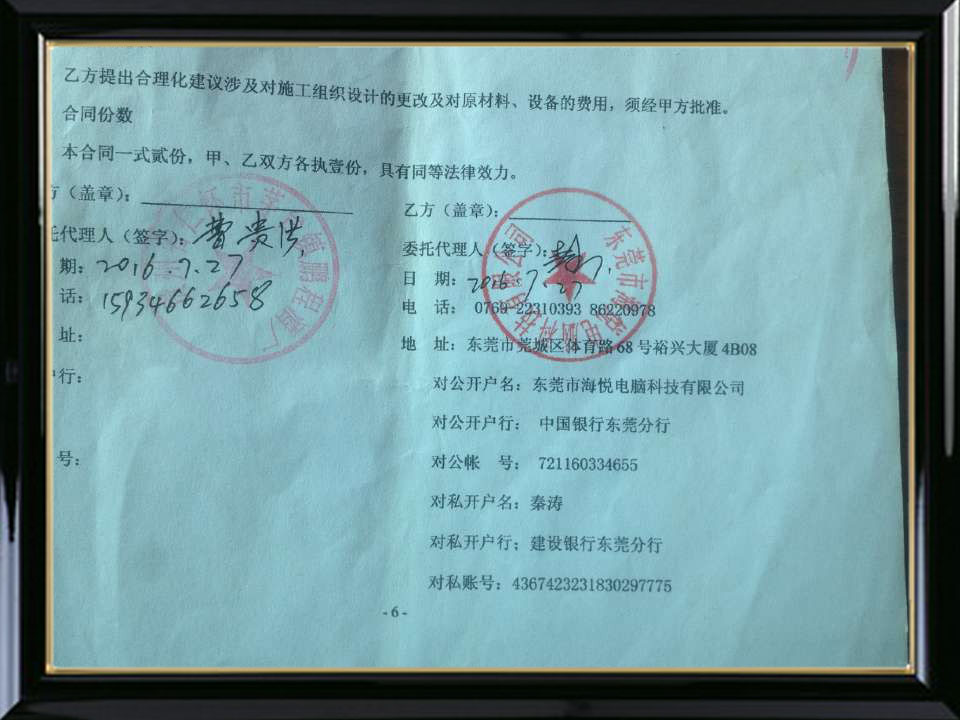 乙方提出合理化建议涉及对施工组织设计的更改及对原材料、设备的费用，须经甲方批准。
合同份数
本合同一式贰份，甲、乙双方各执壹份，具有同等法律效力。
方（盖章）：
乙方（盖章）：
托代理人（签字）：曹贵洪
委托代理人（签字）：
期：2016.7.27
日 期：2016.7.27
话：15934662658
电 话： 0769-22310393 86220978
址：
地 址：东莞市莞城区体育路 68 号裕兴大厦 4B08
行：
对公开户名：东莞市海悦电脑科技有限公司
对公开户行： 中国银行东莞分行
号：
对公帐 号： 721160334655
对私开户名：秦涛
对私开户行：建设银行东莞分行
对私账号：4367423231830297775
- 6 -
东莞市海悦电脑科技有限公司